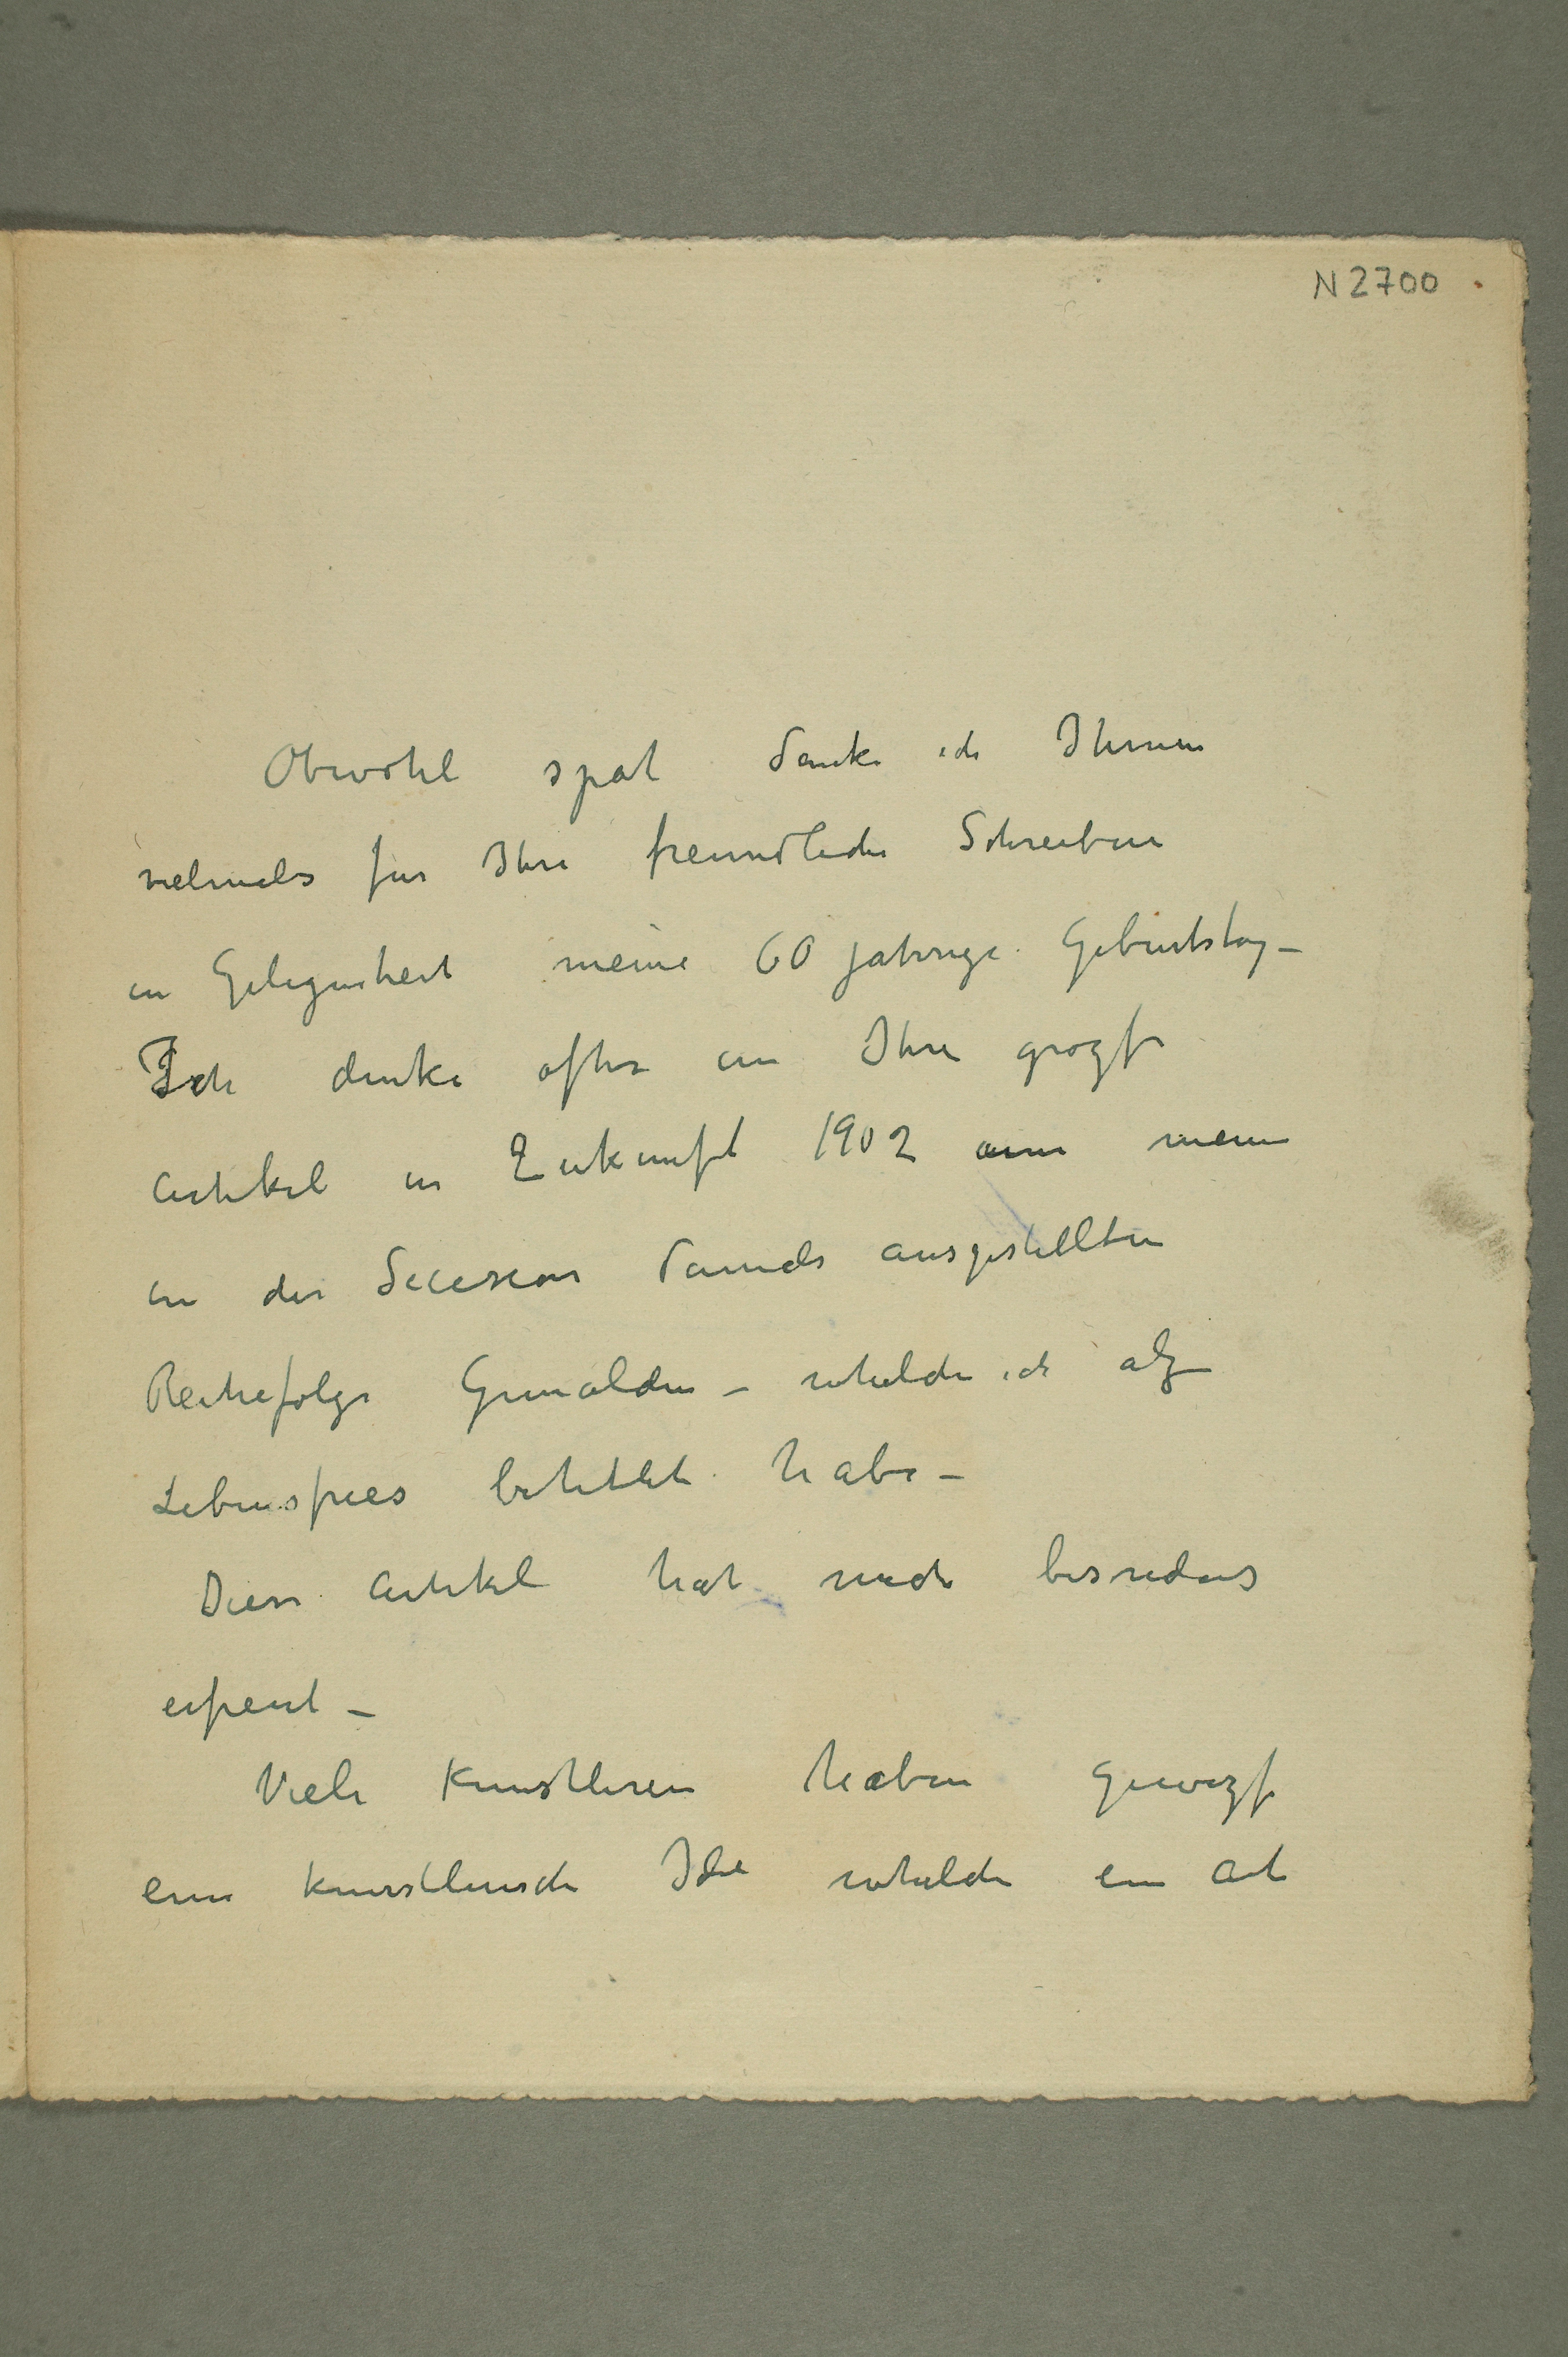 N 2700
Obwohl spat danke ich Ihnen
vielmals fur Ihre freundliche Schreiben
in Gelegenheit meine 60 jahrige Geburtstag –
Ich denke ofter an Ihre grozse
Artikel in Zukunft 1902 meine
in der Secesion damals ausgestellten
Reihefolge Gemalden – whelche ich alz
Lebensfries betitelt habe –
Diese Artikel hat mich besonders
erfreut –
Viele Kunstleren haben gewizs
eine kunstlerische Idee whelche ein Art